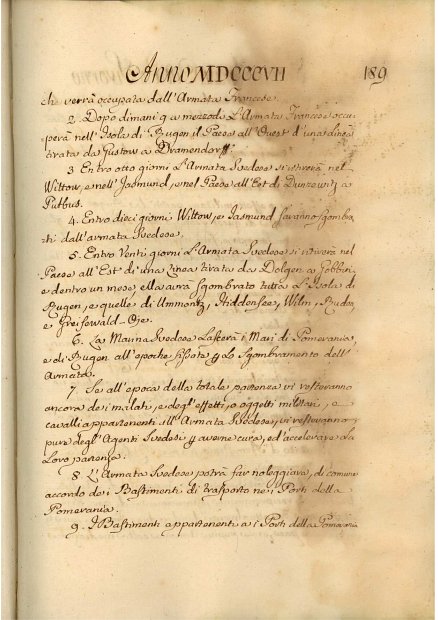 ANNO MDCCCVII 189
che verrà occupata dall'Armata Francese.
2. Dopo dimani 9 a mezzodì L'Armata Francese occu-
perà nell'Isola di Rugen il Paese all'Ovest d'una linea
tirata da Gustow a Dramendorff.
3 Entro otto giorni L'Armata Svedese si ritirerà nel
Wittow, e nell'Jasmund, e nel Paese all'Est di a
Putbus.
4. Entro dieci giorni Wittow, e Jasmund saranno sgombra-
ti dall'armata Svedese.
5. Entro Venti giorni L'Armata Svedese si ritirerà nel
Paese all'Est di una Linea tirata da Dolgen a Gobbin,
e dentro un mese ella avrà sgombrato tutta L'Isola di
Rugen, e quelle di Ummentz, Hiddensee, Wilm, Ruden,
e Greifswald-Oje.
6. La Marina Svedese Lascerà i Mari di Pomerania,
e di Rugen all'epoche fissate Lo Sgombramento dell'
Armata.
7. Se all'epoca della totale partenza vi resteranno
ancora dei malati, e degl'effetti, o oggetti militari, e
cavalli appartenenti all'Armata Svedese, vi resteranno
pure degl'Agenti Svedesi averne cura, ed accelerare la
Loro partenza.
8. L'Armata Svedese potrà far noleggiare, di comune
accordo dei Bastimenti di trasporto nei Porti della
Pomerania.
9. I Bastimenti appartenenti ai Porti della Pomerania